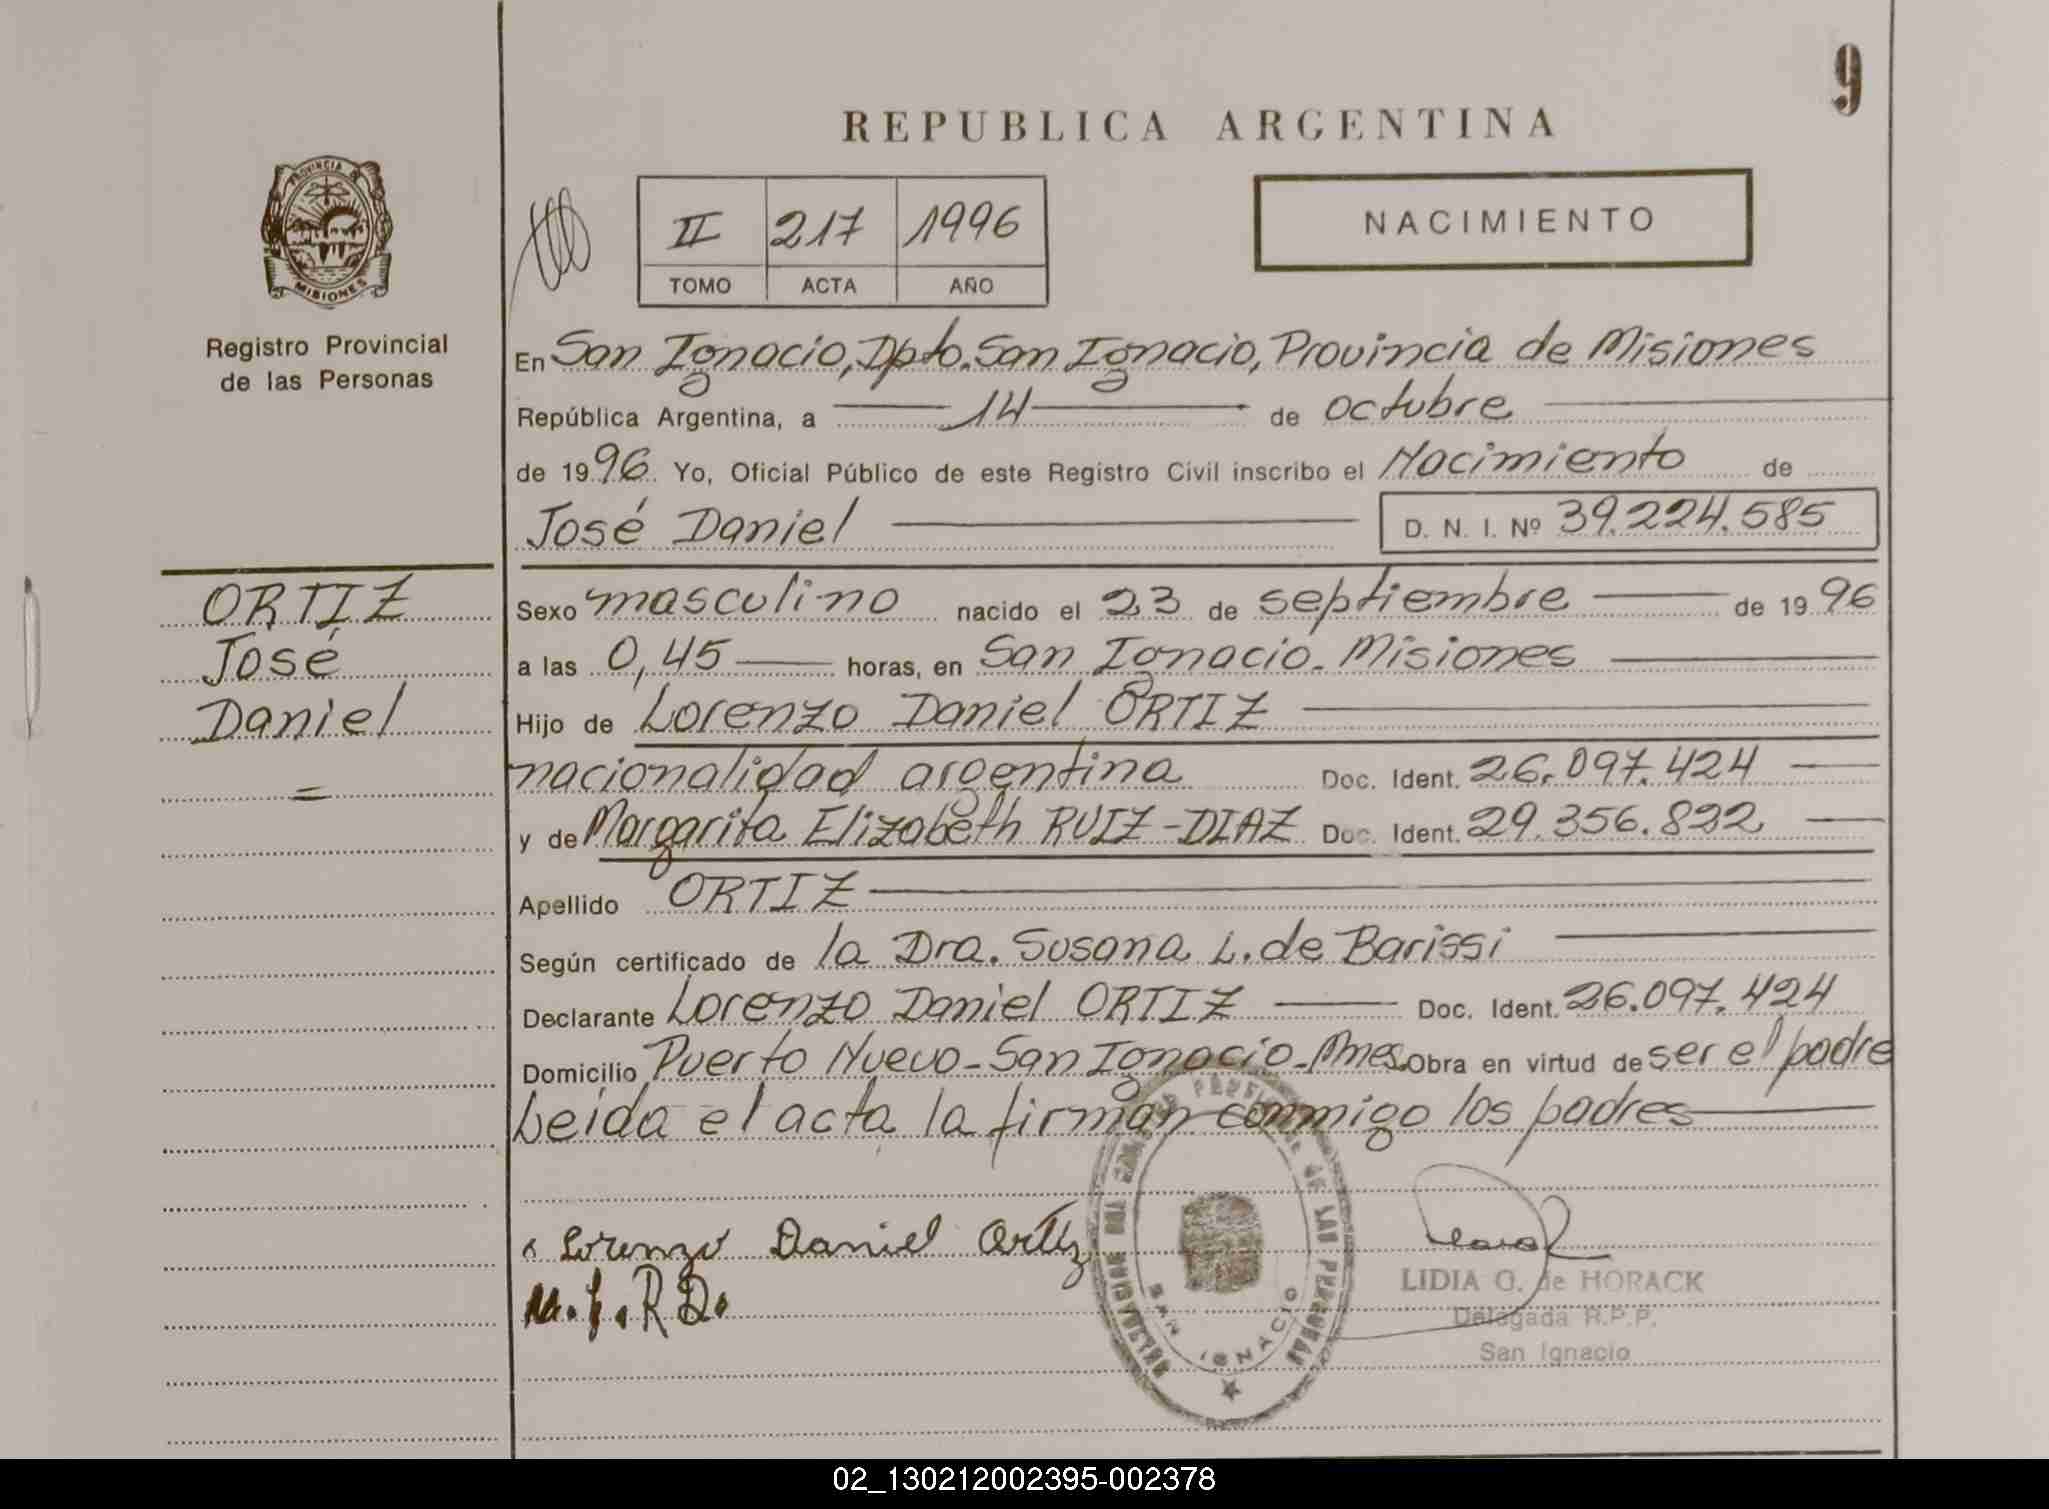 9
REPUBLICA ARGENTINA
PROVINCIA DE
MISIONES
Registro Provincial
de las Personas
II 217 1996
TOMO ACTA AÑO
NACIMIENTO
En San Ignacio, Dpto. San Ignacio, Provincia de Misiones
República Argentina, a 14 de octubre
de 1996 Yo, Oficial Público de este Registro Civil inscribo el Nacimiento de
José Daniel D. N. I. Nº 39.224.585
ORTIZ
José
Daniel
=
Sexo masculino nacido el 23 de septiembre de 1996
a las 0,45 horas, en San Ignacio. Misiones
Hijo de Lorenzo Daniel ORTIZ
nacionalidad argentina Doc. Ident. 26.097.424
y de Margarita Elizabeth RUIZ-DIAZ Doc. Ident. 29.356.822
Apellido ORTIZ
Según certificado de la Dra. Susana L. de Barissi
Declarante Lorenzo Daniel ORTIZ Doc. Ident. 26.097.424
Domicilio Puerto Nuevo-San Ignacio-Mnes. Obra en virtud de ser el padre
Leida el acta la firman conmigo los padres
Lorenzo Daniel Ortiz
M.E.R.D.
SAN IGNACIO
LIDIA G. de HORACK
Delegada R.P.P.
San Ignacio
02_130212002395-002378